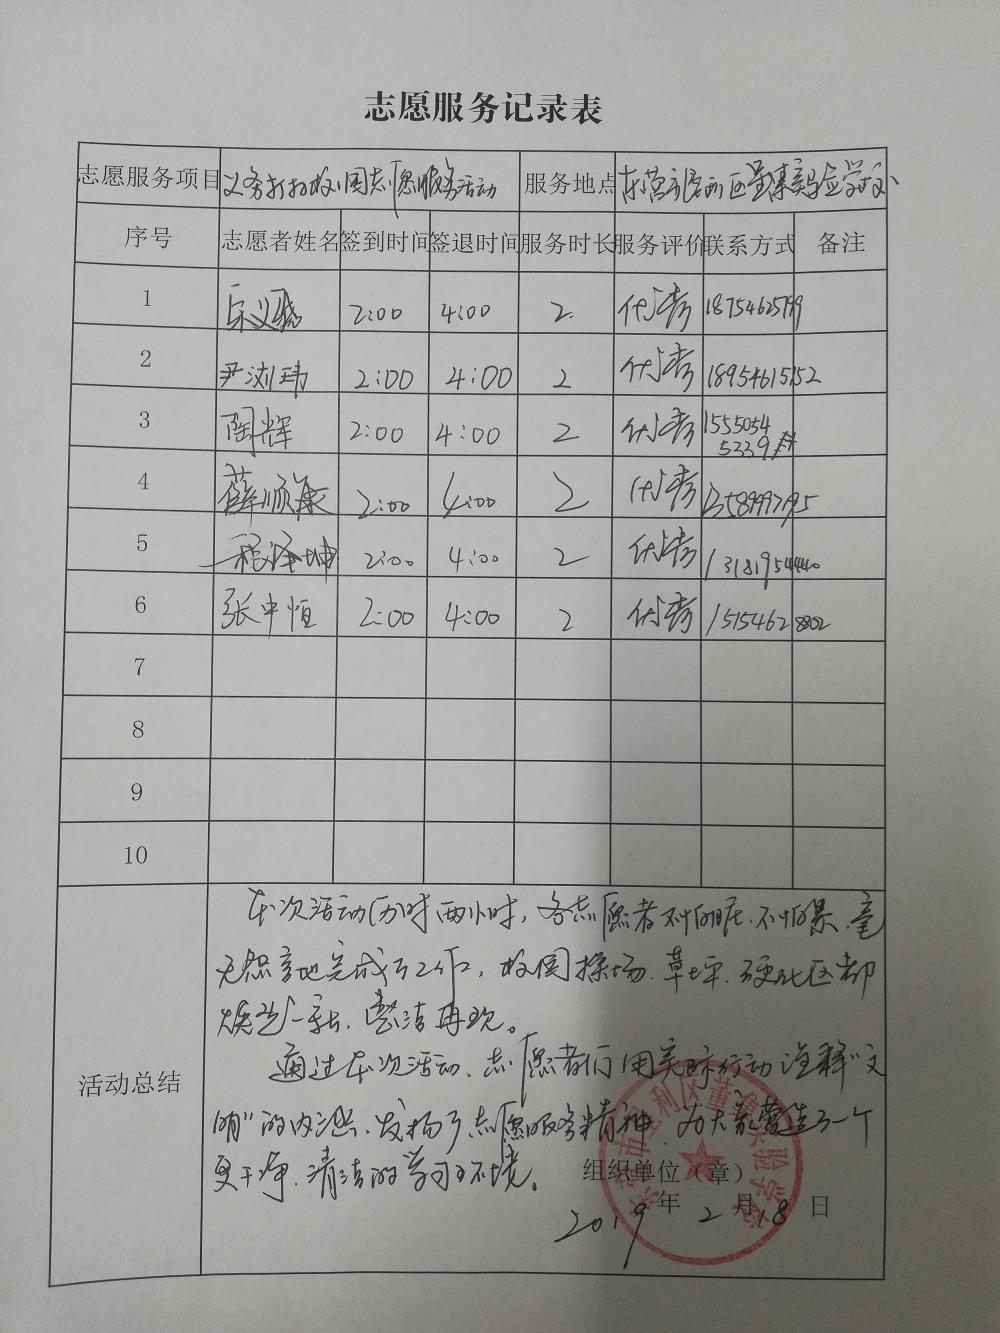 志愿服务记录表
志愿服务项目 义务打扫校园志愿服务活动 服务地点 东营市垦利区董集实验学校
序号 志愿者姓名 签到时间 签退时间 服务时长 服务评价 联系方式 备注
1 2:00 4:00 2 优秀
2 尹浏玮 2:00 4:00 2 优秀 18954615152
3 陶辉 2:00 4:00 2 优秀 1555054
5339
4 薛顺 2:00 4:00 2 优秀
5 程泽坤 2:00 4:00 2 优秀
6 张中恒 2:00 4:00 2 优秀 15154628802
7
8
9
10
活动总结
本次活动历时两小时，各志愿者不怕脏、不怕累、毫
无怨言地完成了工作，校园操场、草坪、硬化区都
焕然一新、整洁再现。
通过本次活动、志愿者们用实际行动诠释“文
明”的内涵、发扬了志愿服务精神、为大家营造了一个
更干净、清洁的学习环境。
组织单位（章）
2019 年 2 月 18 日
东营市垦利区董集实验学校